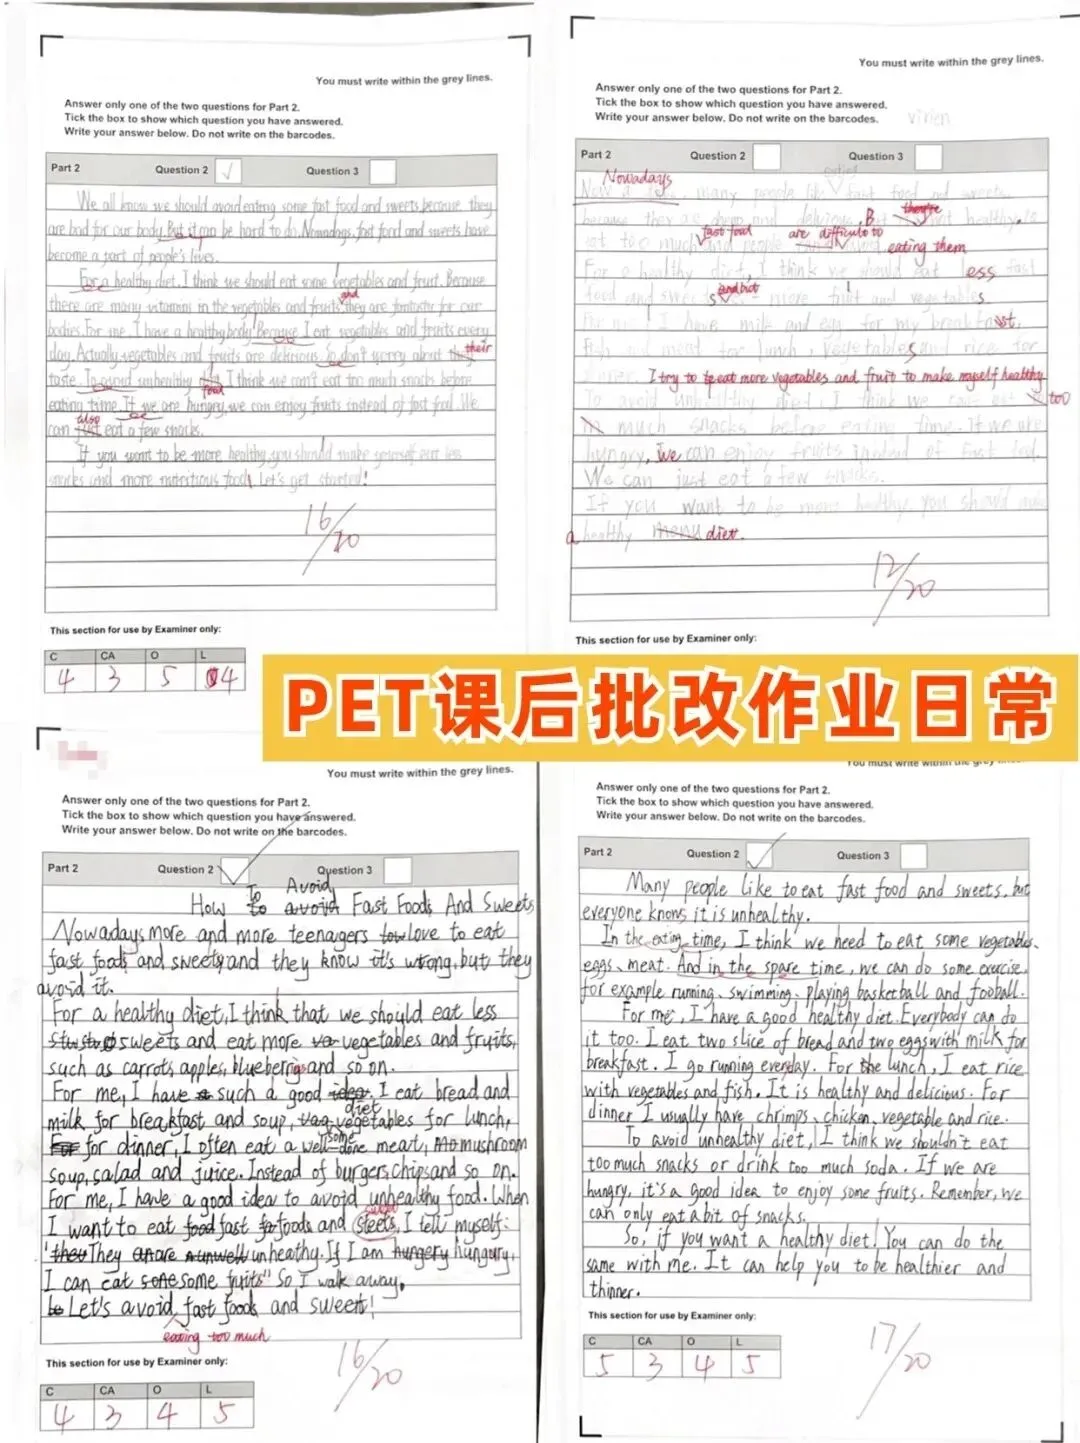 You must write within the grey lines.
Answer only one of the two questions for Part 2.
Tick the box to show which question you have answered.
Write your answer below. Do not write on the barcodes.
Part 2 Question 2 Question 3
We all know we should avoid eating some fast food and sweets, because they
are bad for our body. But it can be hard to do. Nowadays, fast food and sweets have
become a part of people's lives.
For a healthy diet, I think we should eat some vegetables and fruit. Because
there are many vitamins in the vegetables and fruits, and they are fantastic for our
bodies. For me, I have a healthy body Because I eat vegetables and fruits every
day. Actually, vegetables and fruits are delicious. So don't worry about their
taste. To avoid unhealthy food I think we can't eat too much snacks before
eating time. If we are hungry, we can enjoy fruits instead of fast food. We
can also just eat a few snacks.
If you want to be more healthy, you should make yourself eat less
snacks and more nutritious food. Let's get started!
16/20
This section for use by Examiner only:
C CA O L
4 3 5 4
You must write within the grey lines.
Answer only one of the two questions for Part 2.
Tick the box to show which question you have answered.
Write your answer below. Do not write on the barcodes. vivien
Part 2 Question 2 Question 3
Nowadays
many people like fast food and sweets
because they are cheap and delicious. But they're not healthy.
fast food are difficult to
eat too much and people eating them
For a healthy diet, I think we should eat less fast
food and sweets and but more fruit and vegetables
For me, I have milk and egg for my breakfast.
Fish and meat for lunch, vegetables and rice for
I try to eat more vegetables and fruit to make myself healthy
To avoid unhealthy diet, I think we can't eat too
much snacks before eating time. If we are
hungry, We can enjoy fruits instead of fast food.
We can just eat a few snacks.
If you want to be more healthy, you should make
a healthy menu diet.
12/20
This section for use by Examiner only:
PET课后批改作业日常
You must write within the grey lines.
Answer only one of the two questions for Part 2.
Tick the box to show which question you have answered.
Write your answer below. Do not write on the barcodes.
Part 2 Question 2 Question 3
To Avoid
How to avoid Fast Foods And Sweets
Nowadays, more and more teenagers love to eat
fast foods and sweets, and they know it's wrong, but they
avoid it.
For a healthy diet, I think that we should eat less
sweets and eat more vegetables and fruits,
such as carrots, apples, blueberries and so on.
For me, I have such a good idea. I eat bread and
diet
milk for breakfast and soup, vegetables for lunch,
some
for dinner, I often eat a well-done meat, mushroom
soup, salad and juice. Instead of burgers, chips and so on.
For me, I have a good idea to avoid unhealthy food. When
sweet
I want to eat food fast foods and steets, I tell myself:
"They are unwell unheathy. If I am hungery hungury,
I can eat some fruits" So I walk away.
Let's avoid fast foods and sweet!
eating too much
16/20
This section for use by Examiner only:
C CA O L
4 3 4 5
You must write within the grey lines.
Answer only one of the two questions for Part 2.
Tick the box to show which question you have answered.
Write your answer below. Do not write on the barcodes.
Part 2 Question 2 Question 3
Many people like to eat fast food and sweets, but
everyone knows it is unhealthy.
In the eating time, I think we need to eat some vegetables、
eggs、meat. And in the spare time, we can do some exercise,
for example running、swimming、playing basketball and fooball.
For me, I have a good healthy diet. Everybody can do
it too. I eat two slice of bread and two eggs with milk for
breakfast. I go running everyday. For the lunch, I eat rice
with vegetables and fish. It is healthy and delicious. For
dinner I usually have chrimps、chicken, vegetable and rice.
To avoid unhealthy diet, I think we shouldn't eat
too much snacks or drink too much soda. If we are
hungry, it's a good idea to enjoy some fruits. Remember, we
can only eat a bit of snacks.
So, if you want a healthy diet! You can do the
same with me. It can help you to be healthier and
thinner.
17/20
This section for use by Examiner only:
C CA O L
5 3 4 5